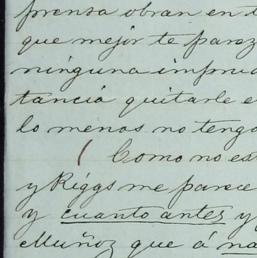 prensa obran en t
que mejor te parez
ninguna impru
tancia quitarle e
lo menos no tengo
Como no es
y Riggs me parece
y cuanto antes y
Muñoz que á na